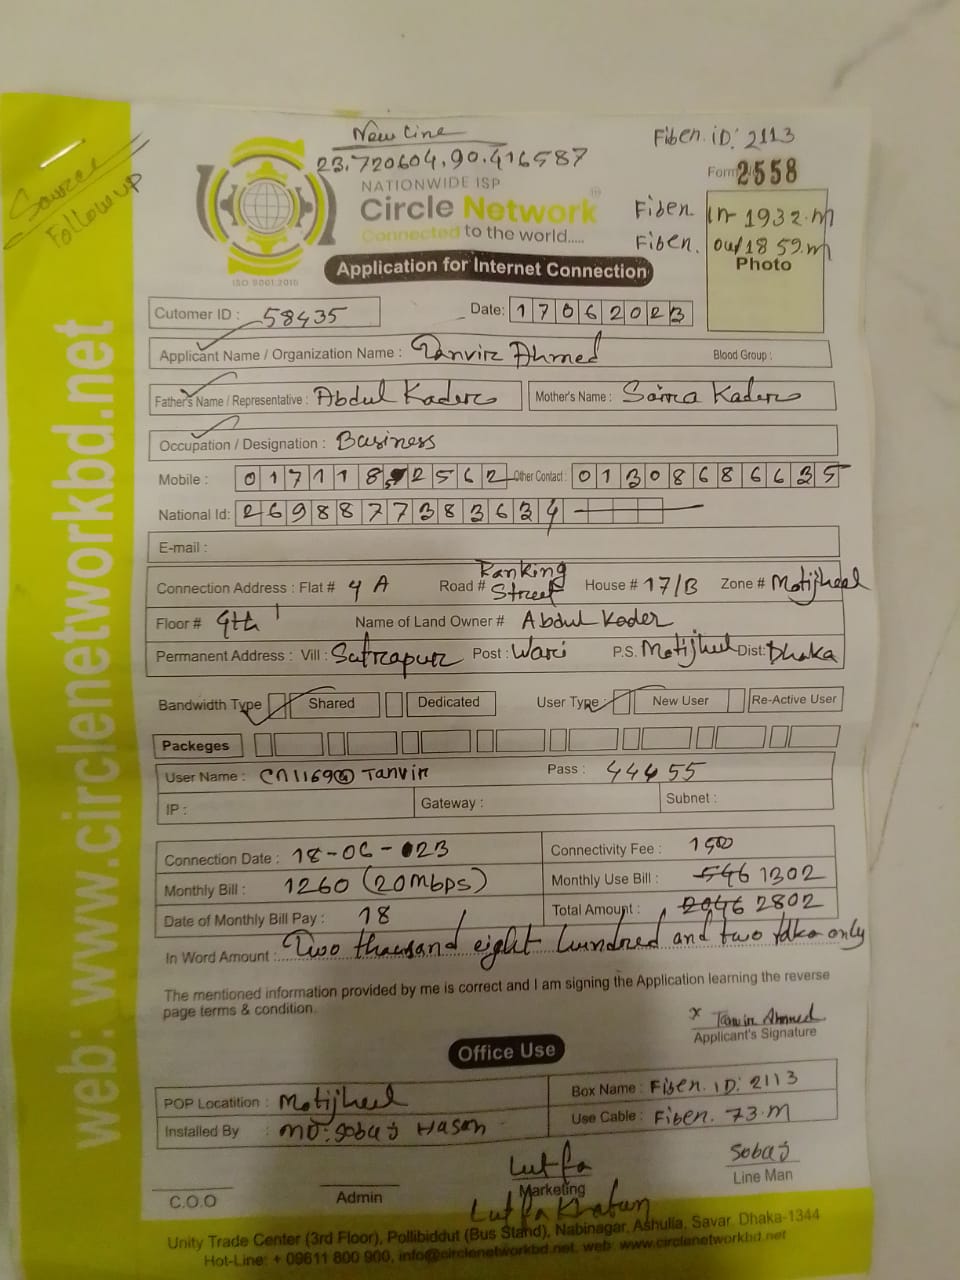 New Line
Fiber. iD: 2113
23.720604,90.416587
Form 2558
NATIONWIDE ISP
Circle Network
Connected to the world.....
ISO 9001:2015
Fiber. in- 1932.m
Fiber. out 1859.m
Photo
Source
Followup
Application for Internet Connection
Cutomer ID : 58435 Date: 17062023
Applicant Name / Organization Name : Tanvir Ahmed Blood Group :
Father's Name / Representative : Abdul Kader Mother's Name : Saira Kader
Occupation / Designation : Business
Mobile : Other Contact : 01308686635
National Id: 2698877383634
E-mail :
Connection Address : Flat # 4 A Road # Ranking Street House # 17/B Zone # Motijheel
Floor # 4th Name of Land Owner # Abdul Kader
Permanent Address : Vill : Sutrapur Post : Wari P.S. Motijheel Dist: Dhaka
Bandwidth Type Shared Dedicated User Type : New User Re-Active User
Packeges
User Name : Tanvir Pass : 44455
IP : Gateway : Subnet :
Connection Date : 18-06-023 Connectivity Fee : 1500
Monthly Bill : 1260 (20Mbps) Monthly Use Bill : 546 1302
Date of Monthly Bill Pay : 18 Total Amount : 2046 2802
In Word Amount : Two thousand eight hundred and two taka only
The mentioned information provided by me is correct and I am signing the Application learning the reverse
page terms & condition.
x Tanvir Ahmed
Applicant's Signature
Office Use
POP Locatition : Motijheel Box Name : Fiber. ID: 2113
Installed By : MD: Sobaj Hasan Use Cable : Fiber. 73.m
Lutfa Sobaj
C.O.O Admin Marketing Line Man
Lutfa Khatun
Unity Trade Center (3rd Floor), Pollibiddut (Bus Stand), Nabinagar, Ashulia, Savar, Dhaka-1344
Hot-Line: + 09611 800 900, info@circlenetworkbd.net, web: www.circlenetworkbd.net
web: www.circlenetworkbd.net